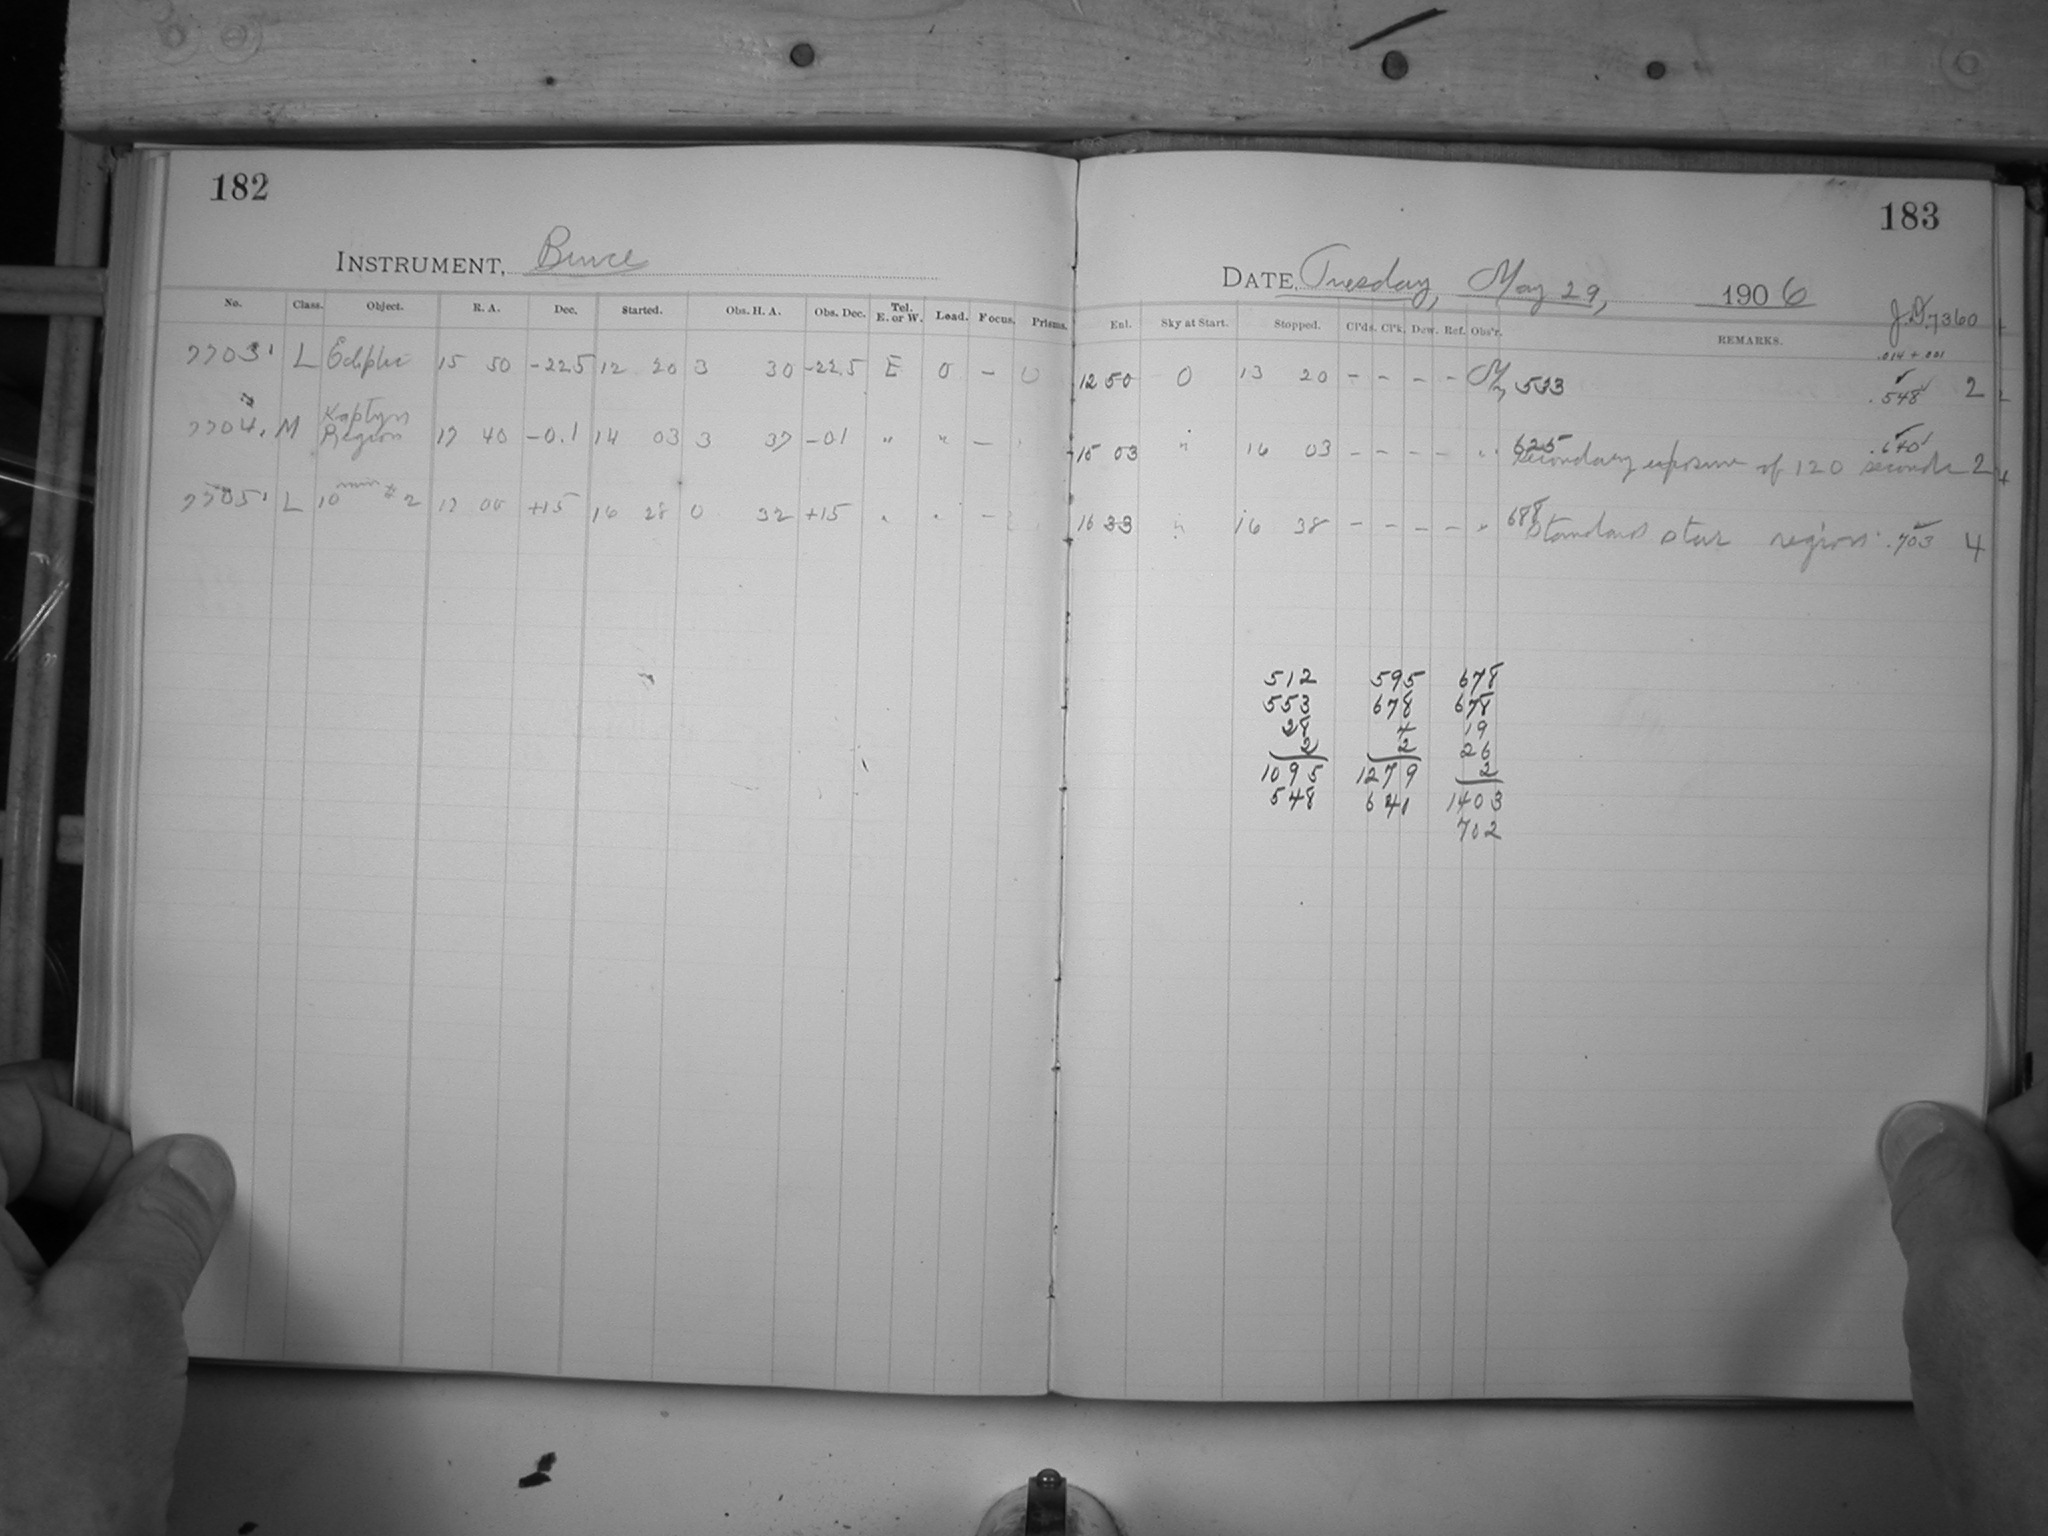 182
183
INSTRUMENT, Bruce
DATE, Tuesday, May 29, 1906
J.D. 7360
No. Class. Object. R. A. Dec. Started. Obs. H. A. Obs. Dec. Tel. E. or W. Load. Focus. Prisms. Enl. Sky at Start. Stopped. Cl'ds. Cl'k. Dew. Ref. Obs'r. REMARKS.
.014 + .001
7703 L Ecliptic 15 50 -22.5 12 20 3 30 -22.5 E 0 - 0 12 50 0 13 20 - - - - M 533 .548 2
7704. M Kaptyn Region 17 40 -0.1 14 03 3 37 -0.1 " " - 15 03 " 16 03 - - - - " 625 .640
Secondary exposure of 120 seconds 2
7705 L 10 min #2 17 00 +15 16 28 0 32 +15 " " - 16 33 " 16 38 - - - - " 688
Standard star region .703 4
512 595 678
553 678 678
28 4 19
2 2 26
1095 1279 2
548 640 1403
702